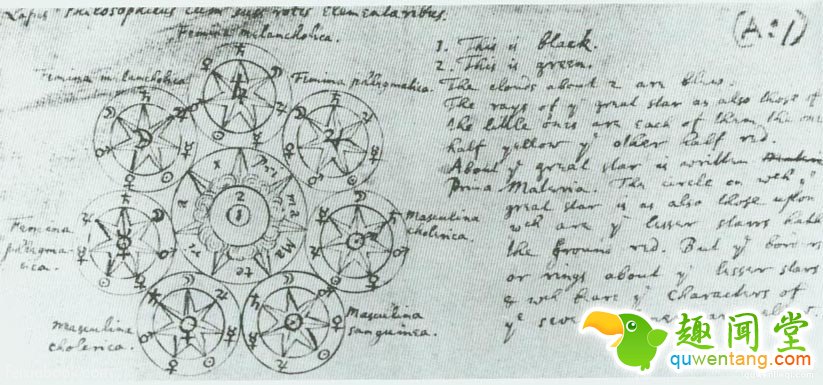 Lapis Philosophicus cum suis rotis Elementaribus.
(A:1)
Femina melancholica.
Femina melancholica
Femina phlegmatica.
Femina
phlegma-
tica.
Masculina
cholerica.
Masculina
cholerica.
Masculina
sanguinea.
Pri
ma
Ma
te
ri
a
2
1
1. This is black.
2. This is green.
The clouds about 2 are blue.
The rays of yͤ great star as also those of
the little ones are each of them the one
half yellow yͤ other half red.
About yͤ great star is written
Prima Materia. The circle on wch yͤ
great star is as also those upon
wch are yͤ lesser starrs hath
the ground red. But yͤ borders
or rings about yͤ lesser stars
& wch bear yͤ characters of
yͤ
趣闻堂
quwentang.com